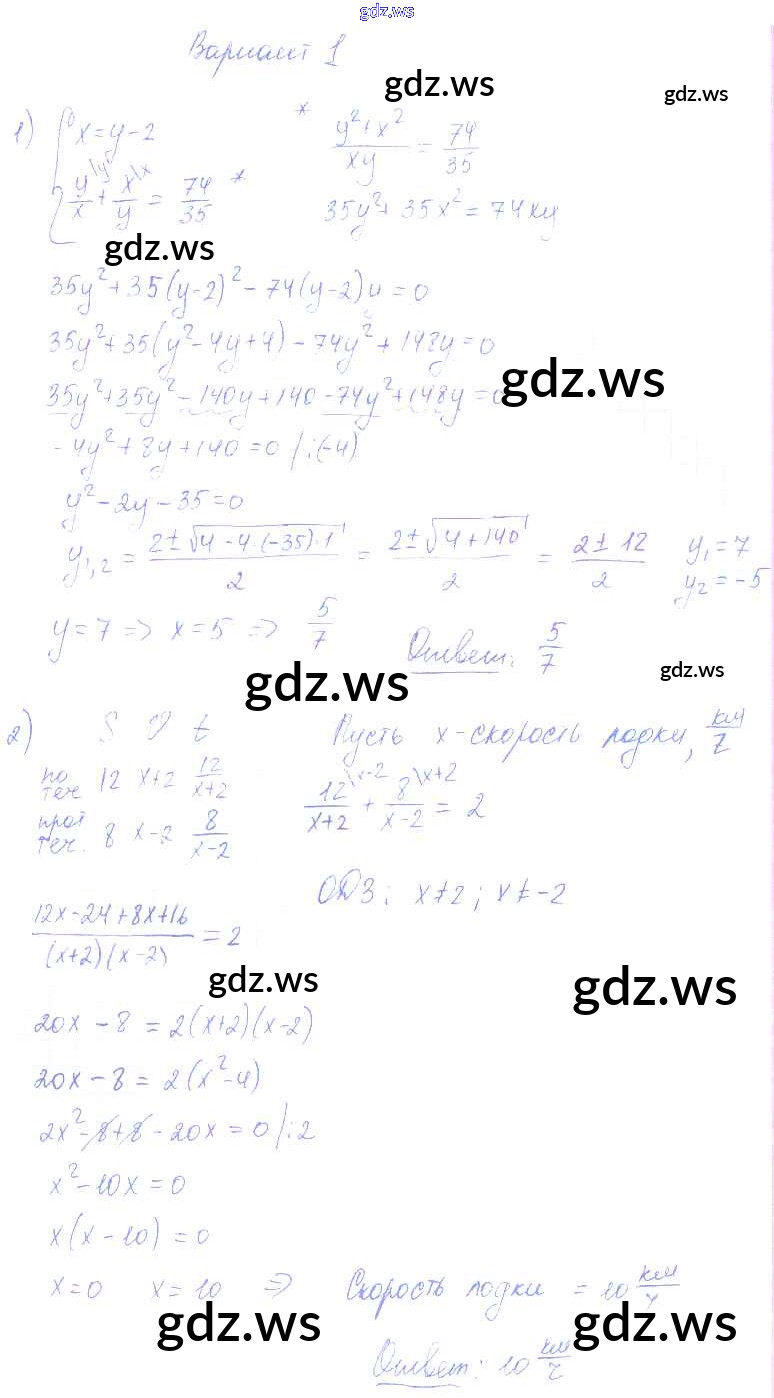 gdz.ws
Вариант 1
gdz.ws
gdz.ws
1) { x = y - 2
y/x + x/y = 74/35 *
* (y² + x²)/xy = 74/35
35y² + 35x² = 74xy
gdz.ws
35y² + 35(y-2)² - 74(y-2)y = 0
35y² + 35(y² - 4y + 4) - 74y² + 148y = 0
gdz.ws
35y² + 35y² - 140y + 140 - 74y² + 148y = 0
- 4y² + 8y + 140 = 0 | :(-4)
y² - 2y - 35 = 0
y₁,₂ = (2 ± √(4 - 4·(-35)·1))/2 = (2 ± √(4 + 140))/2 = (2 ± 12)/2 y₁ = 7
y₂ = -5
y = 7 => x = 5 => 5/7
Ответ: 5/7
gdz.ws
gdz.ws
2) S V t
по теч 12 x+2 12/(x+2)
прот теч. 8 x-2 8/(x-2)
Пусть x - скорость лодки, км/ч
12/(x+2) \x-2 + 8/(x-2) \x+2 = 2
ОДЗ: x ≠ 2; x ≠ -2
(12x - 24 + 8x + 16)/((x+2)(x-2)) = 2
gdz.ws
gdz.ws
20x - 8 = 2(x+2)(x-2)
20x - 8 = 2(x² - 4)
2x² - 8 + 8 - 20x = 0 | :2
x² - 10x = 0
x(x - 10) = 0
x = 0 x = 10 => Скорость лодки = 10 км/ч
gdz.ws
gdz.ws
Ответ: 10 км/ч